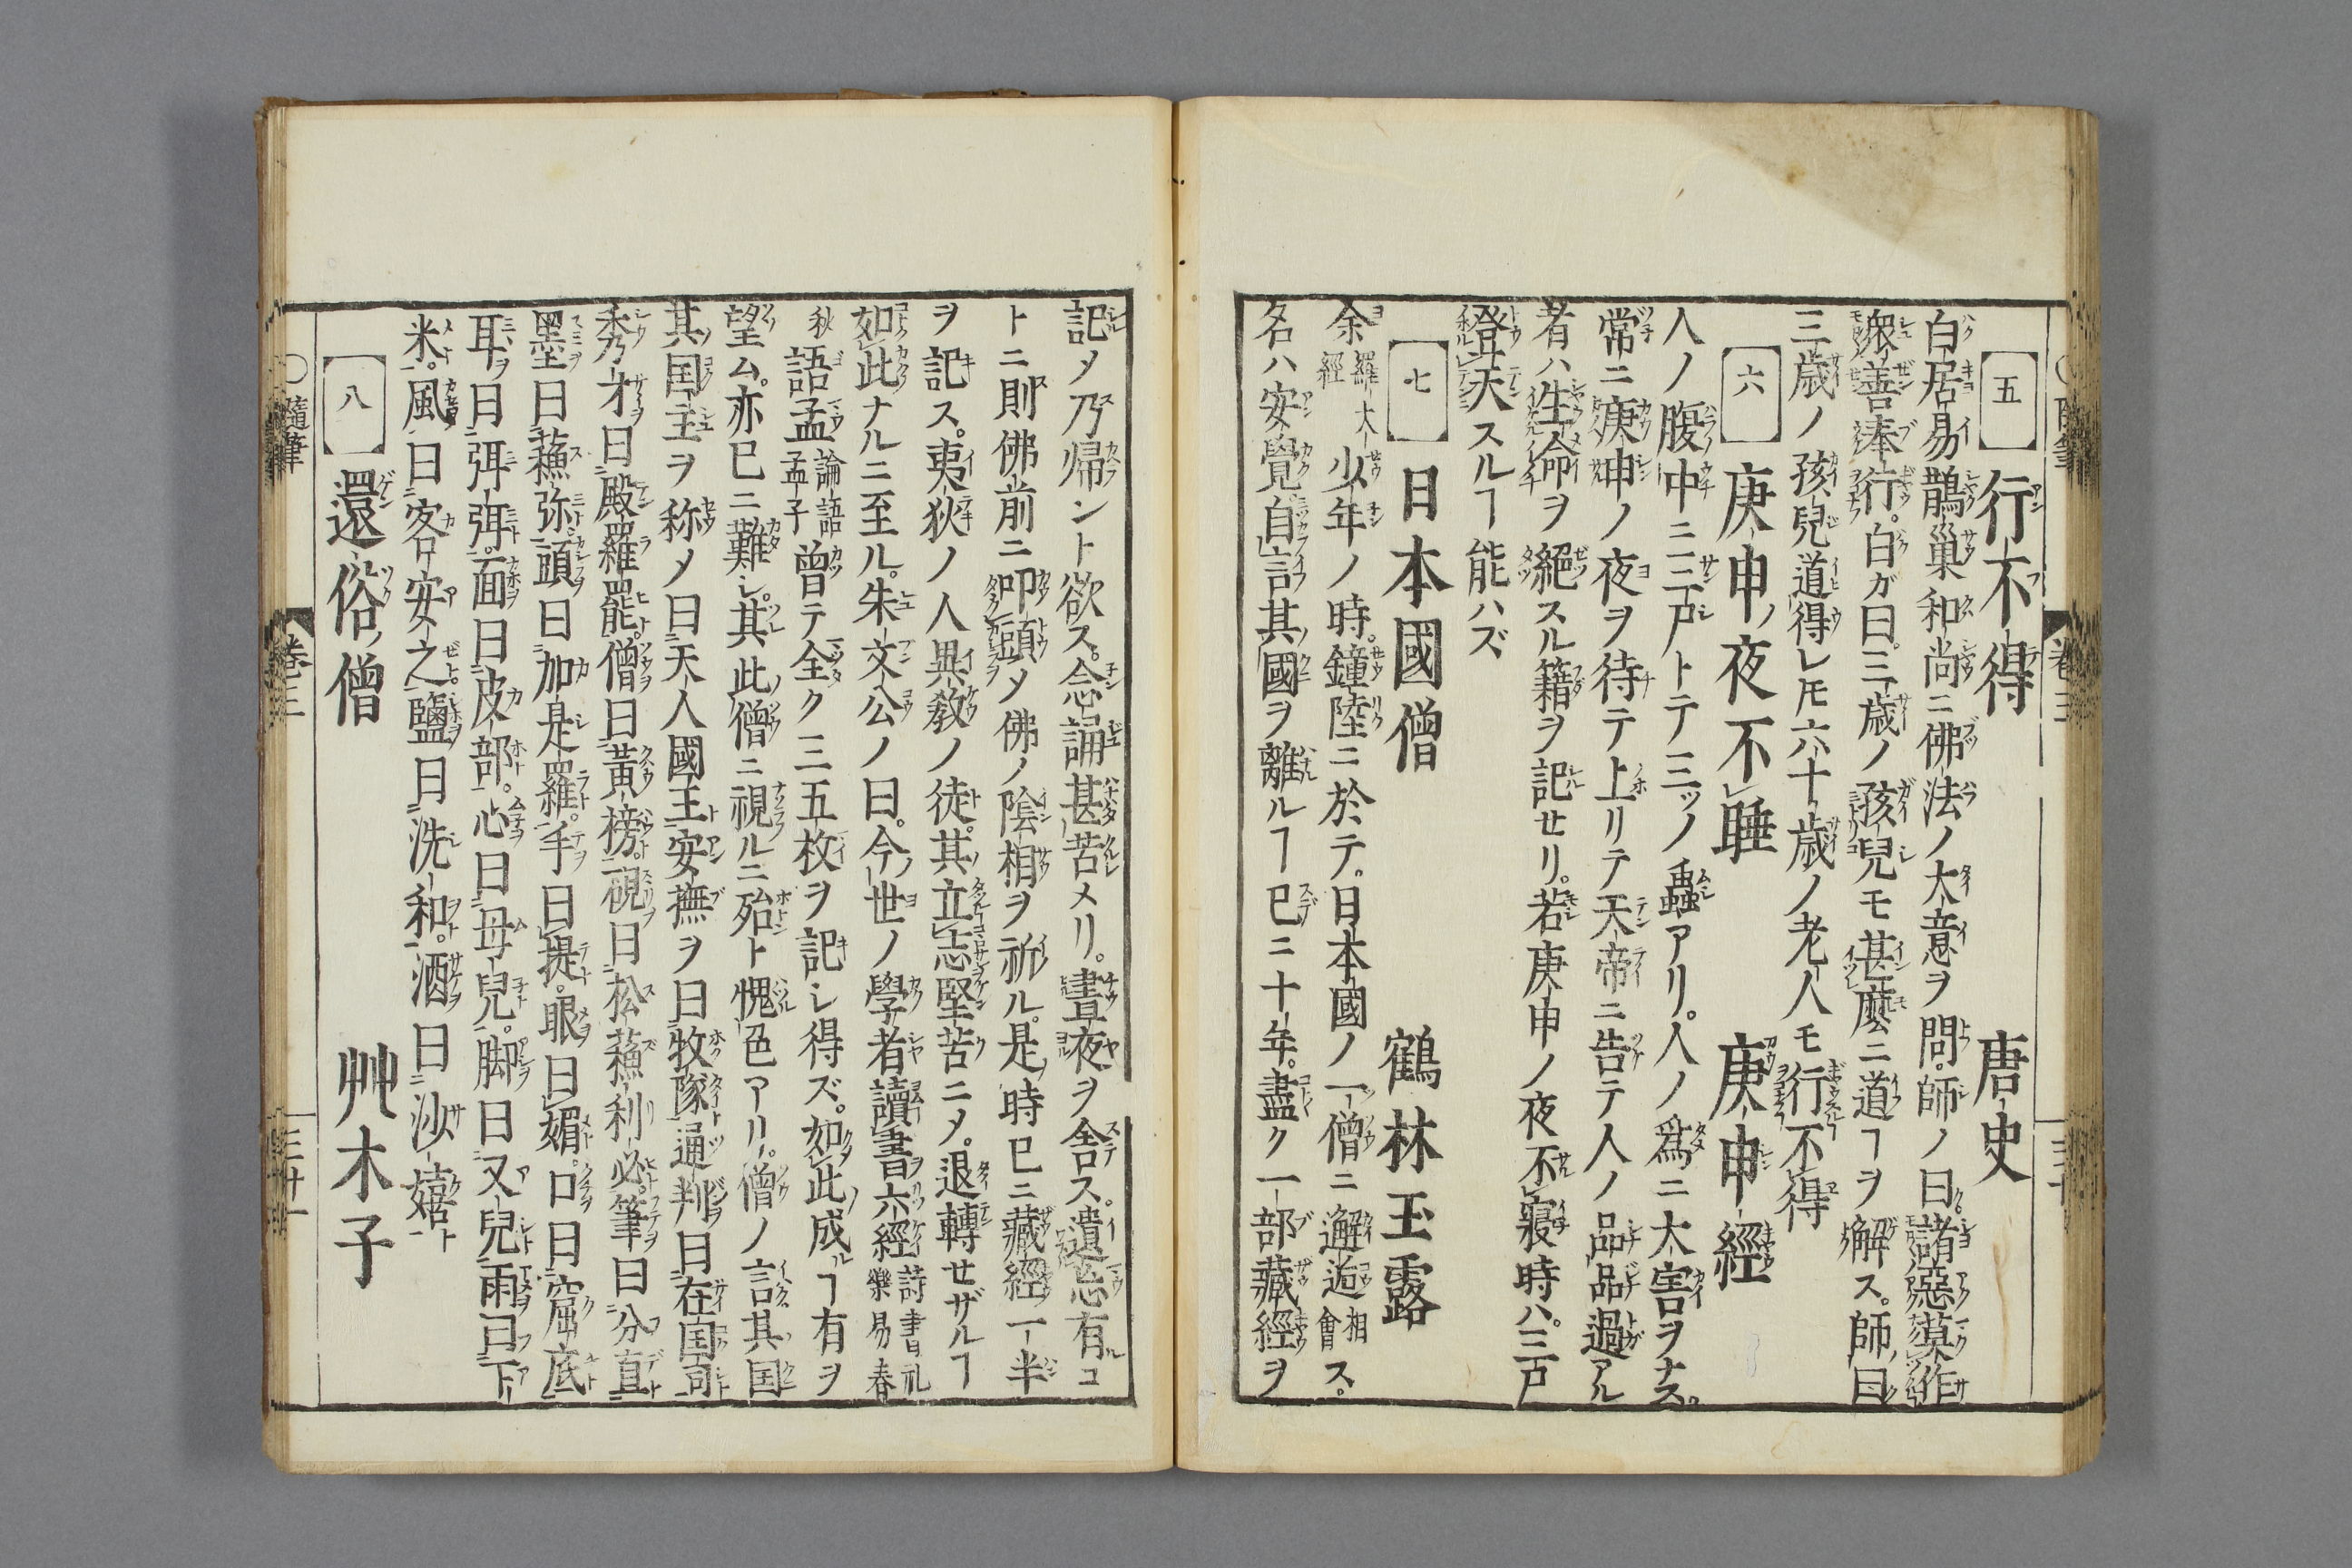 五 行不得 唐史
白居易鵲巢和尚ニ佛法ノ大意ヲ問。師ノ曰。諸惡莫作
衆善奉行。白ガ曰。三歳ノ孩兒モ甚麼ニ道ヿヲ解ス。師ノ曰
三歳ノ孩兒道得レ𪜈六十歳ノ老人モ行不得
六 庚申ノ夜不睡 庚申經
人ノ腹中ニ三尸トテ三ツノ蟲アリ。人ノ爲ニ大害ヲナス。
常ニ庚申ノ夜ヲ待テ上リテ天帝ニ告テ人ノ品品過アル
者ハ生命ヲ絕スル籍ヲ記セリ。若庚申ノ夜不寢時ハ。三尸
登天スルヿ能ハズ
七 日本國僧 鶴林玉露
余羅大經少年ノ時。鐘陸ニ於テ。日本國ノ一僧ニ邂逅相會ス。
名ハ安覺自言其國ヲ離ルヿ巳ニ十年。盡ク一部藏經ヲ
記メ乃帰ント欲ス。念誦甚苦メリ。晝夜ヲ舍ス。遺忘有コ
トニ則佛前ニ叩頭メ佛ノ陰相ヲ祈ル。是時巳ニ藏經一半
ヲ記ス。夷狄ノ人異教ノ徒。其立志堅苦ニメ。退轉セザルヿ
如此ナルニ至ル。朱文公ノ曰。今世ノ學者讀書六經詩書礼樂易春
秋語孟論語孟子曾テ全ク三五枚ヲ記シ得ズ。如此ノ成ルヿ有ヲ
望ム。亦巳ニ難シ。其此ノ僧ニ視ルニ殆ト愧色アリ。僧ノ言其国
其国主ヲ称メ曰天人國王安撫ヲ曰牧隊通判曰在国司
秀才曰殿羅罷。僧曰黃榜。硯曰松蘓利必。筆曰分直
墨曰蘓弥。頭曰加是羅。手曰提。眼曰媚。口曰窟底
耳曰弭弭。面曰皮部。心曰母兒。脚曰又兒雨曰下
米。風曰客安之。鹽曰洗和。酒曰沙嬉ト
八 還俗ノ僧 艸木子
○隨筆 卷三 三十一